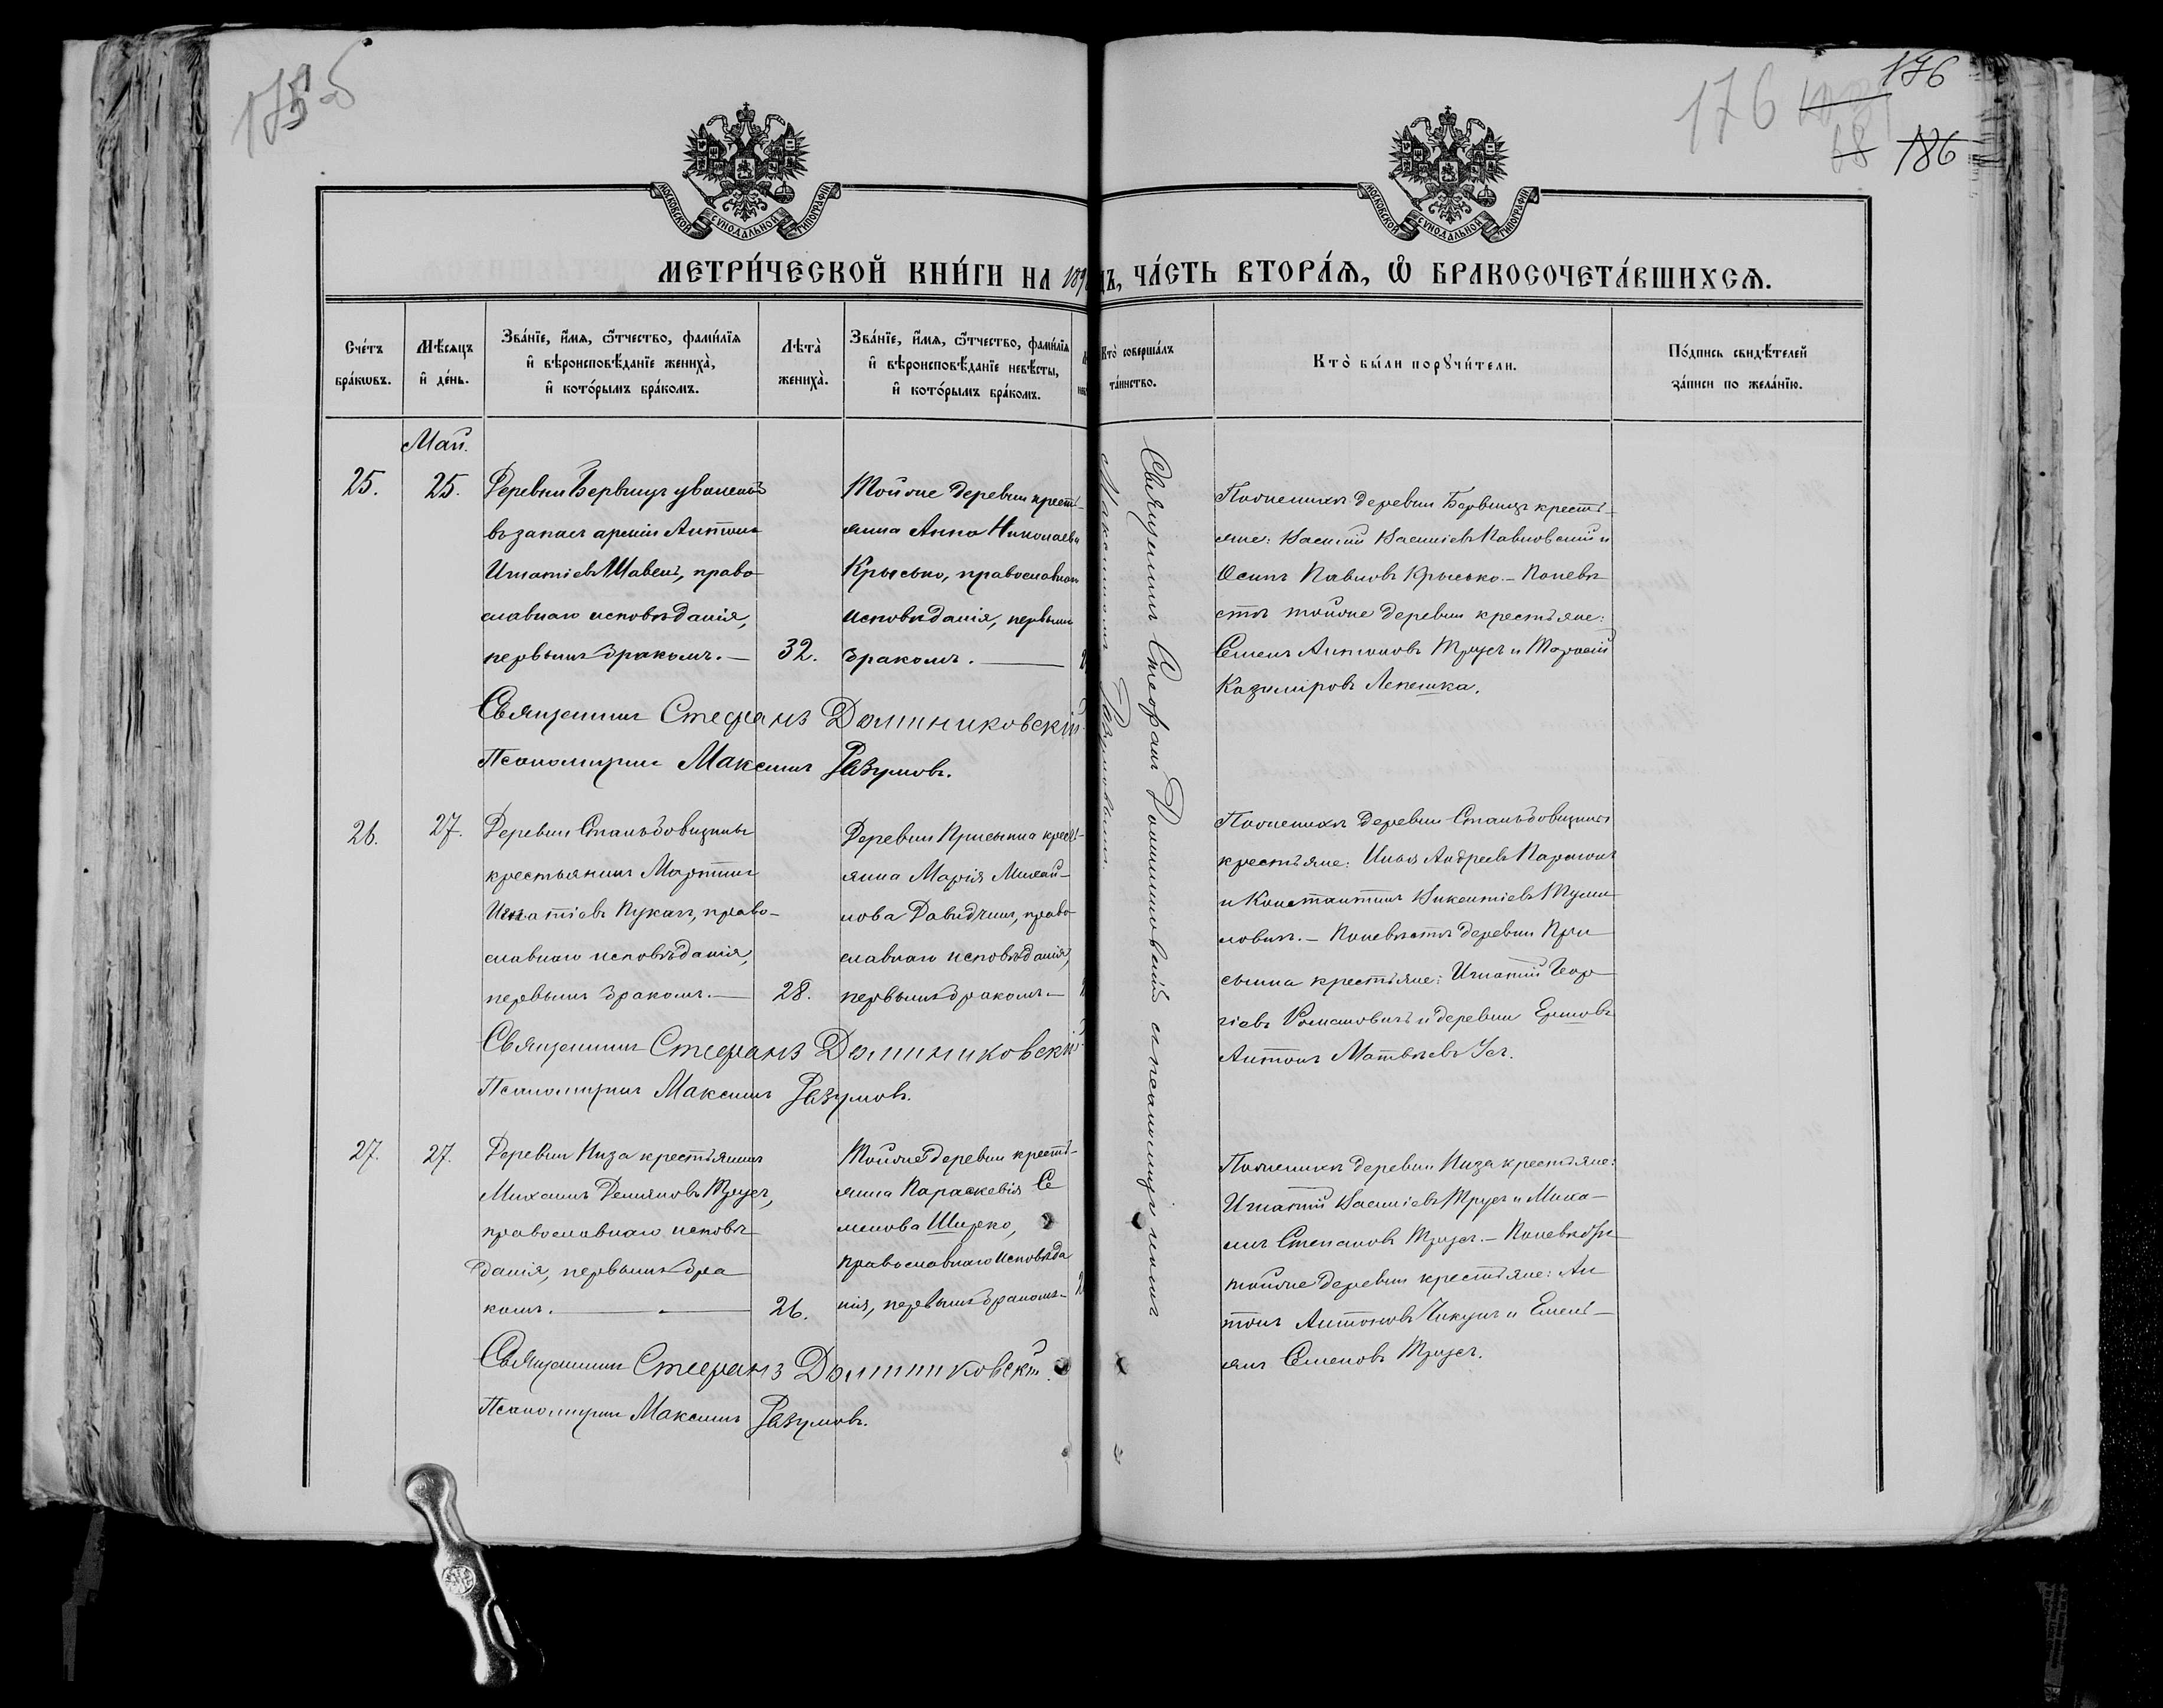 175 б
176
176
186
МОСКОВСКОЙ СѴНОДАЛЬНОЙ ТИПОГРАФІИ
МОСКОВСКОЙ СѴНОДАЛЬНОЙ ТИПОГРАФІИ
МЕТРИ́ЧЕСКОЙ КНИ́ГИ НА 189
ДЪ, ЧА́СТЬ ВТОРА́Ѧ, Ѽ БРАКОСОЧЕТА́ВШИХСѦ.
Сче́тъ бра́кѡвъ.
Мѣ́сѧцъ и҆ де́нь.
Зва́нїе, и҆́мѧ, ѻ҆́тчество, фами́лїѧ и҆ вѣроисповѣ́данїе жениха̀, и҆ кото́рымъ бра́комъ.
Лѣта̀ жениха̀.
Зва́нїе, и҆́мѧ, ѻ҆́тчество, фами́лїѧ и҆ вѣроисповѣ́данїе невѣ́сты, и҆ кото́рымъ бра́комъ.
Кто̀ соверша́лъ та́инство.
Кто̀ бы́ли порꙋчи́тели.
По́дпись свидѣ́телей за́писи по жела́нїю.
Май.
25.
25.
Деревни Бервищъ уволенъ
въ запасъ арміи Антонъ
Игнатіевъ Шавель, право-
славнаго исповѣданія,
первымъ бракомъ. —
32.
Тойже деревни кресть-
янка Анна Николаева
Крысько, православнаго
исповѣданія, первымъ
бракомъ. —
Поженихѣ деревни Бервищъ кресть-
яне: Василій Василіевъ Павловскій и
Осипъ Павловъ Крысько. — Поневѣ
стѣ тойже деревни крестьяне:
Семенъ Антоновъ Трусъ и Маркелій
Казиміровъ Лепешка.
Священникъ Стефанъ Доминиковскій
Псаломщикъ Максимъ Разумовъ.
26.
27.
Деревни Станьдовищины
крестьянинъ Мартинъ
Игнатіевъ Пукачъ, право-
славнаго исповѣданія,
первымъ бракомъ. —
28.
Деревни Присынка кресть-
янка Марія Михай-
лова Давидчикъ, право-
славнаго исповѣданія,
первымъ бракомъ —
Поженихѣ деревни Станьдовищины
крестьяне: Илья Андреевъ
и Константинъ Викентіевъ
Поневѣстѣ деревни При
сынка крестьяне: Игнатій Геор
гіевъ Романовичъ и деревни
Антонъ Матвѣевъ Усъ.
Священникъ Стефанъ Доминиковскій
Псаломщикъ Максимъ Разумовъ.
27.
27.
Деревни Низа крестьянинъ
Михаилъ Демьяновъ Трусъ,
православнаго исповѣ-
данія, первымъ бра
комъ. —
26.
Тойже деревни кресть-
янка Параскевія Се
менова Ширко,
православнаго исповѣда
нія, первымъ бракомъ —
Поженихѣ деревни Низа крестьяне:
Игнатій Василіевъ Трусъ и Миха-
илъ Степановъ Трусъ. — Поневѣстѣ
тойже деревни крестьяне: Ан
тонъ Антоновъ Чикунъ и Емель-
янъ Семеновъ Трусъ.
Священникъ Стефанъ Доминиковскій
Псаломщикъ Максимъ Разумовъ.
Священникъ Стефанъ Доминиковскій съ псаломщикомъ
Максимомъ Разумовымъ.